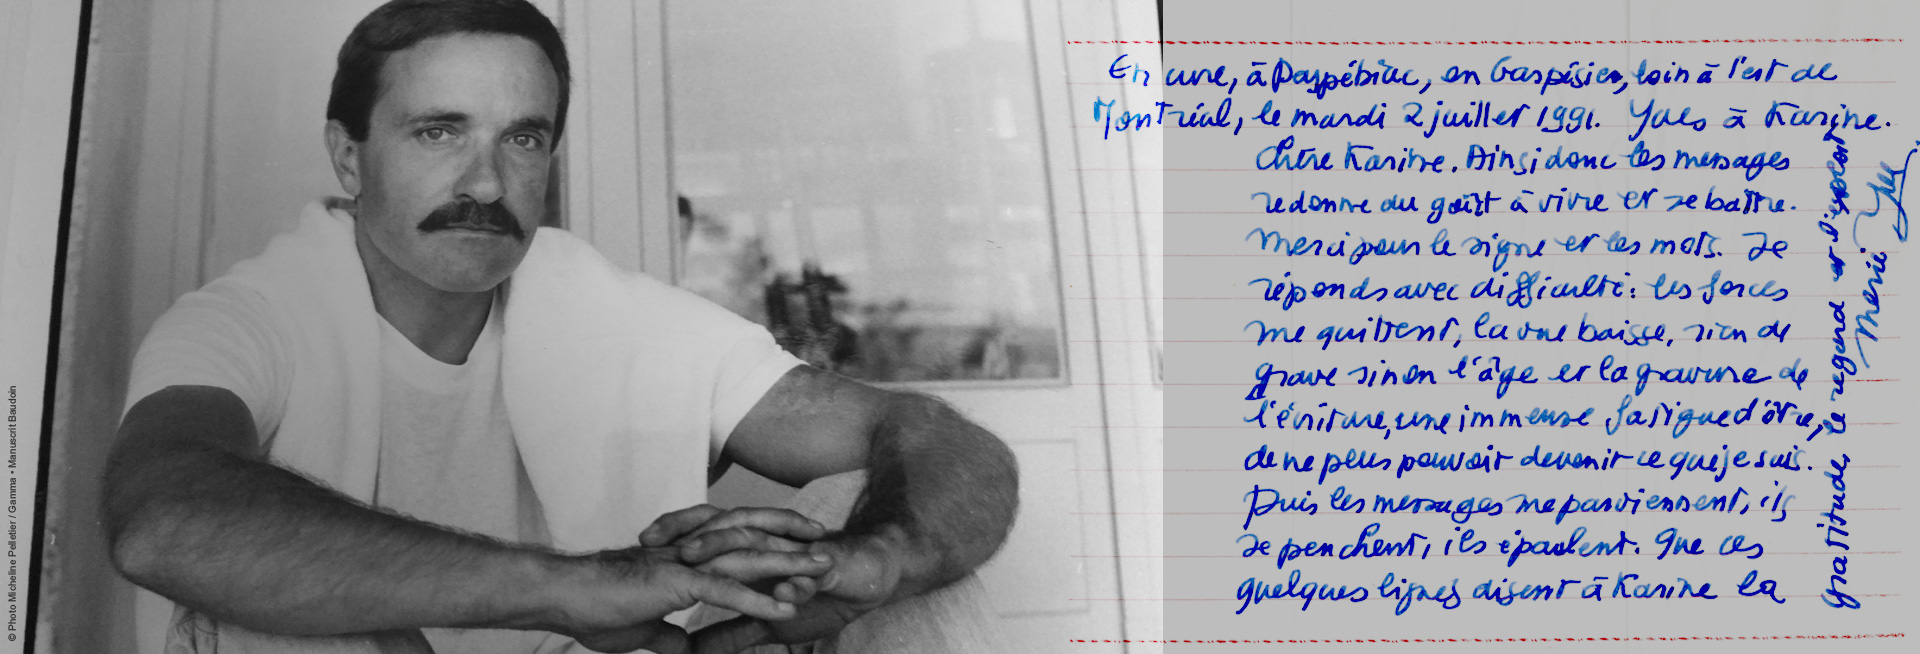 En cure, à Paspébiac, en Gaspésie, loin à l'est de
Montréal, le mardi 2 juillet 1991. Yves à Karine.
Chère Karine. Ainsi donc les messages
redonne du goût à vivre et se battre.
Merci pour le signe et les mots. Je
réponds avec difficulté : les forces
me quittent, la vue baisse, rien de
grave sinon l'âge et la gravure de
l'écriture, une immense fatigue d'être,
de ne plus pouvoir devenir ce que je suis.
Puis les messages me parviennent, ils
se penchent, ils épaulent. Que ces
quelques lignes disent à Karine la
gratitude, le regard et
Merci Yves
© Photo Micheline Pelletier / Gamma • Manuscrit Baudoin